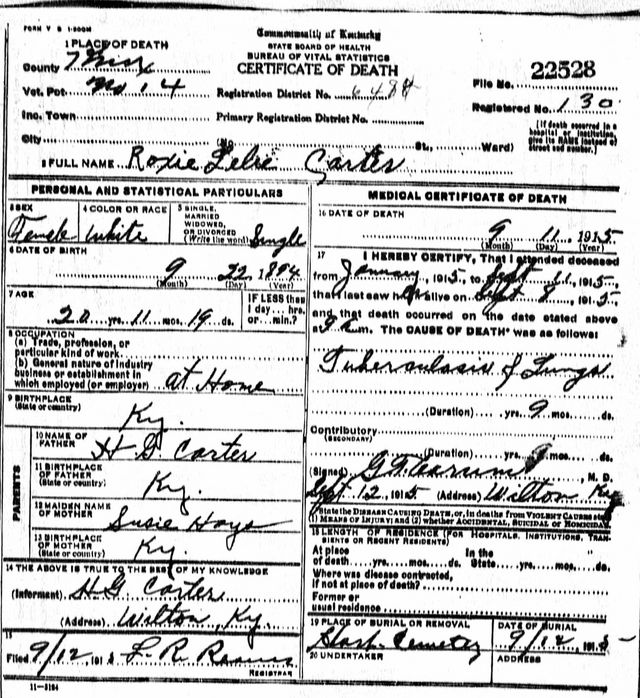 FORM V S 1-500M
Commonwealth of Kentucky
STATE BOARD OF HEALTH
BUREAU OF VITAL STATISTICS
CERTIFICATE OF DEATH
1 PLACE OF DEATH
County Knox
Vot. Pct No 14
Inc. Town
City
Registration District No. 6484
Primary Registration District No.
(No. St., Ward)
File No. 22528
Registered No. 130
[If death occurred in a hospital or institution, give its NAME instead of street and number.]
2 FULL NAME Roxie Lelie Carter
PERSONAL AND STATISTICAL PARTICULARS
3 SEX Female
4 COLOR OR RACE White
5 SINGLE, MARRIED WIDOWED, OR DIVORCED (Write the word) Single
6 DATE OF BIRTH
9 22 1894
(Month) (Day) (Year)
7 AGE
20 yrs. 11 mos. 19 ds.
IF LESS than 1 day... hrs. or... min.?
8 OCCUPATION
(a) Trade, profession, or particular kind of work
(b) General nature of industry business or establishment in which employed (or employer) at Home
9 BIRTHPLACE
(State or country) Ky.
PARENTS
10 NAME OF FATHER H G Carter
11 BIRTHPLACE OF FATHER (State or country) Ky.
12 MAIDEN NAME OF MOTHER Susie Hays
13 BIRTHPLACE OF MOTHER (State or country) Ky.
14 THE ABOVE IS TRUE TO THE BEST OF MY KNOWLEDGE
(Informant) H G Carter
(Address) Wilton, Ky.
15
Filed 9/12, 1915 L. R.
REGISTRAR
11-3184
MEDICAL CERTIFICATE OF DEATH
16 DATE OF DEATH
9 11 1915
(Month) (Day) (Year)
17 I HEREBY CERTIFY, That I attended deceased
from January, 1915, to Sept 11, 1915,
that I last saw her alive on Sept 8, 1915,
and that death occurred on the date stated above
at 9 m. The CAUSE OF DEATH* was as follows:
Tuberculosis of Lungs
(Duration) yrs. 9 mos. ds.
Contributory
(SECONDARY)
(Duration) yrs. 9 mos. ds.
(Signed) M. D.
Sept 12, 1915 (Address) Wilton Ky
*State the DISEASE CAUSING DEATH, or, in deaths from VIOLENT CAUSES state (1) MEANS OF INJURY; and (2) whether ACCIDENTAL, SUICIDAL OR HOMICIDAL
18 LENGTH OF RESIDENCE (FOR HOSPITALS, INSTITUTIONS, TRANSIENTS OR RECENT RESIDENTS)
At place of death yrs. mos. ds. In the State yrs. mos. ds.
Where was disease contracted, if not at place of death?
Former or usual residence
19 PLACE OF BURIAL OR REMOVAL
Cemetery
DATE OF BURIAL
9/12, 1915
20 UNDERTAKER
ADDRESS